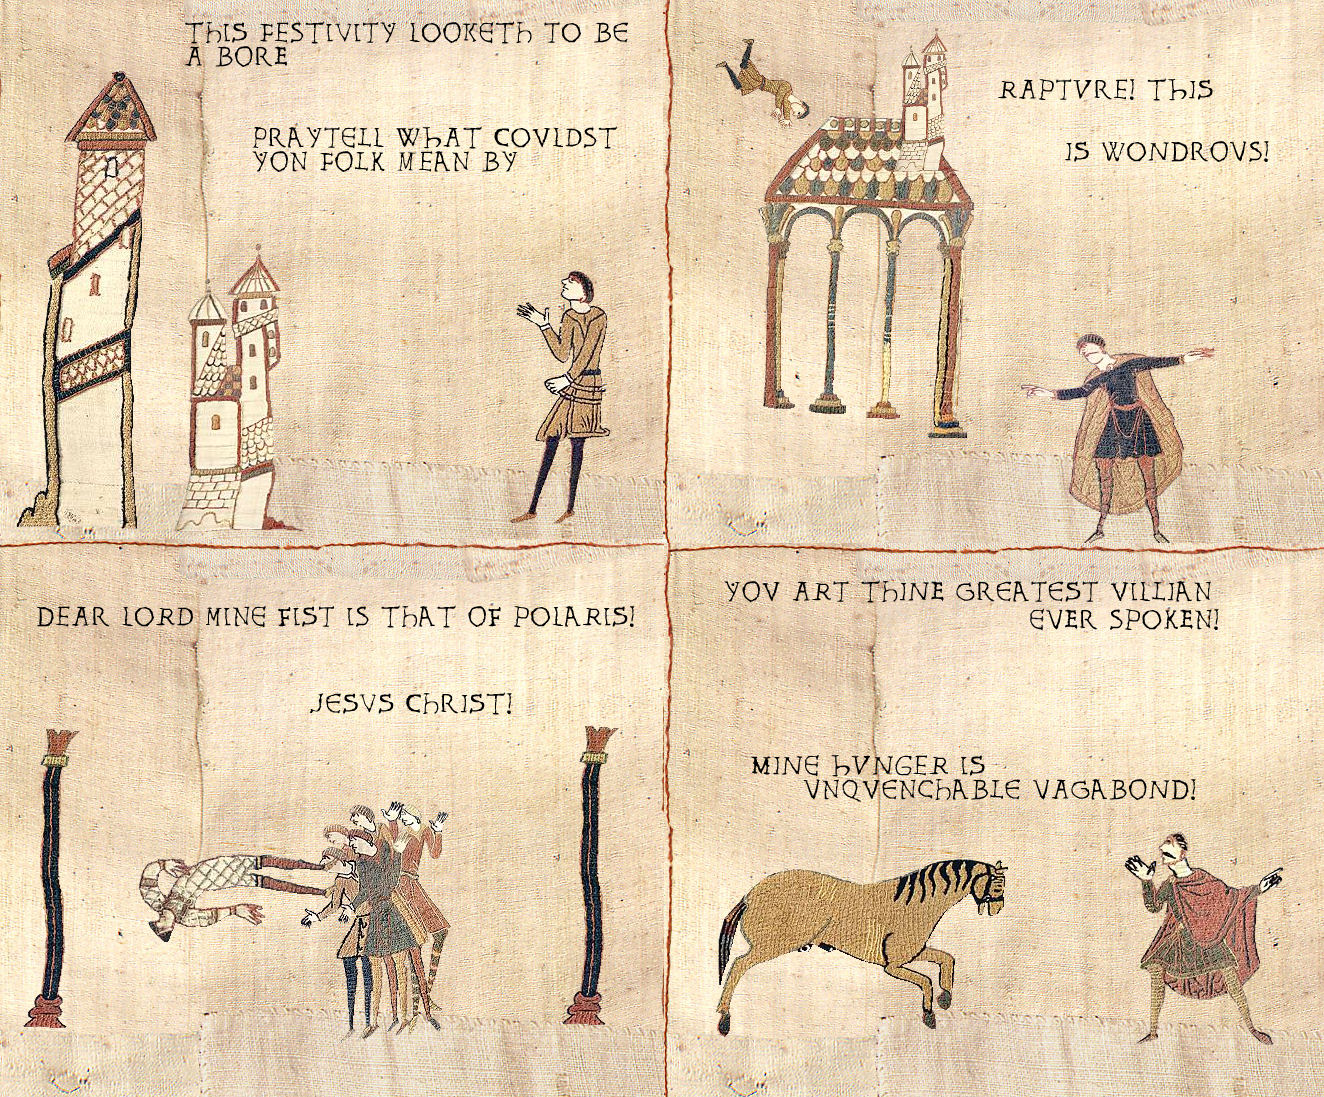 THIS FESTIVITY LOOKETH TO BE
A BORE
PRAYTELL WHAT COVLDST
YON FOLK MEAN BY
RAPTVRE! THIS
IS WONDROVS!
DEAR LORD MINE FIST IS THAT OF POLARIS!
JESVS CHRIST!
YOV ART THINE GREATEST VILLIAN
EVER SPOKEN!
MINE HVNGER IS
VNQVENCHABLE VAGABOND!